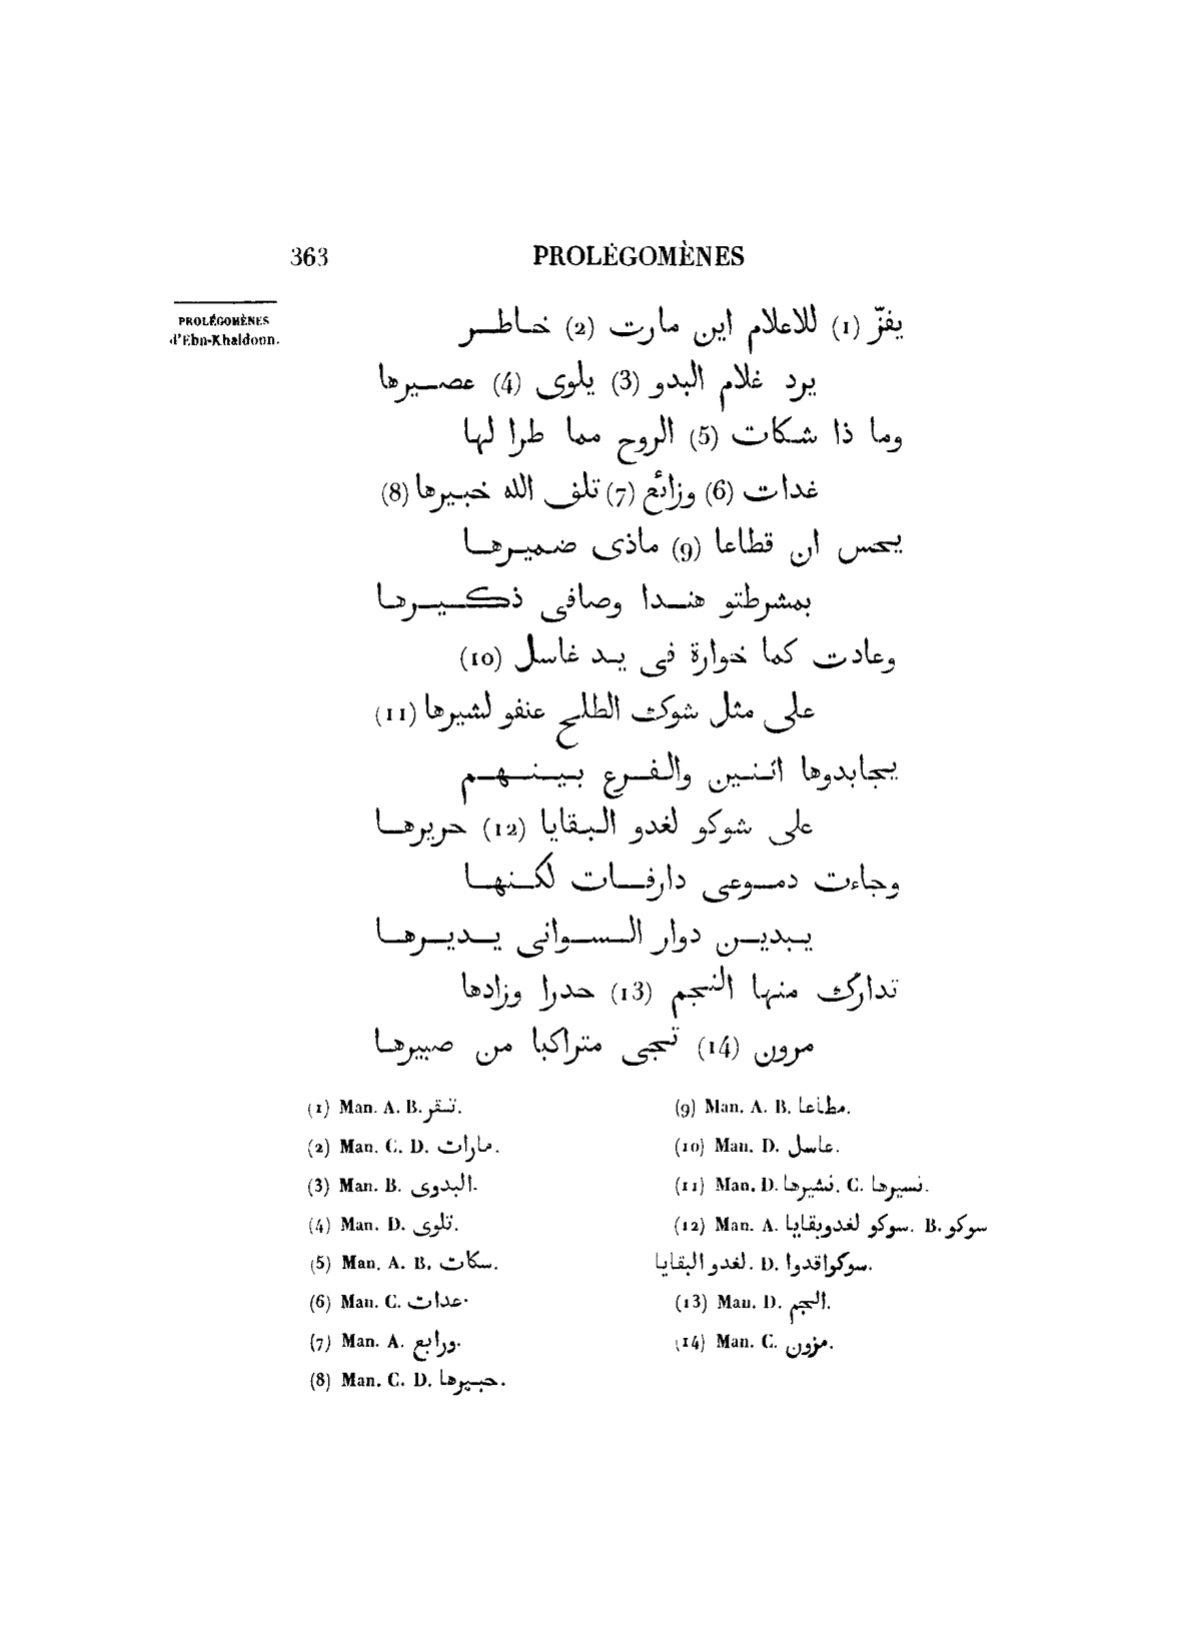 363 PROLÉGOMÈNES
PROLÉGOMÈNES
d'Ebn-Khaldoun.
يفزّ (1) للاعلام اين مارت (2) خاطر
يرد غلام البدو (3) يلوى (4) عصيرها
وما ذا شكات (5) الروح مما طرا لها
غدات (6) وزائع (7) تلف الله خبيرها (8)
يحس ان قطاعا (9) ماذى ضميرها
بمشرطتو هندا وصافى ذكيرها
وعادت كما خوارة فى يد غاسل (10)
على مثل شوك الطلح عنفو لشيرها (11)
يجابدوها اثنين والفرع بينهم
على شوكو لغدو البقايا (12) حريرها
وجاءت دموعى دارفات لكنها
يبدين دوار السوانى يديرها
تدارك منها النجم (13) حدرا وزادها
مرون (14) تجى متراكبا من صبيرها
(1) Man. A. B. تنقر.
(2) Man. C. D. مارات.
(3) Man. B. البدوى.
(4) Man. D. تلوى.
(5) Man. A. B. سكات.
(6) Man. C. عدات.
(7) Man. A. ورابع.
(8) Man. C. D. حبيرها.
(9) Man. A. B. مطاعا.
(10) Man. D. عاسل.
(11) Man. D. نشيرها. C. نسيرها.
(12) Man. A. سوكو لغدوبقايا. B. سوكو
لغدو البقايا. D. سوكواقدوا.
(13) Man. D. الجم.
(14) Man. C. مزون.